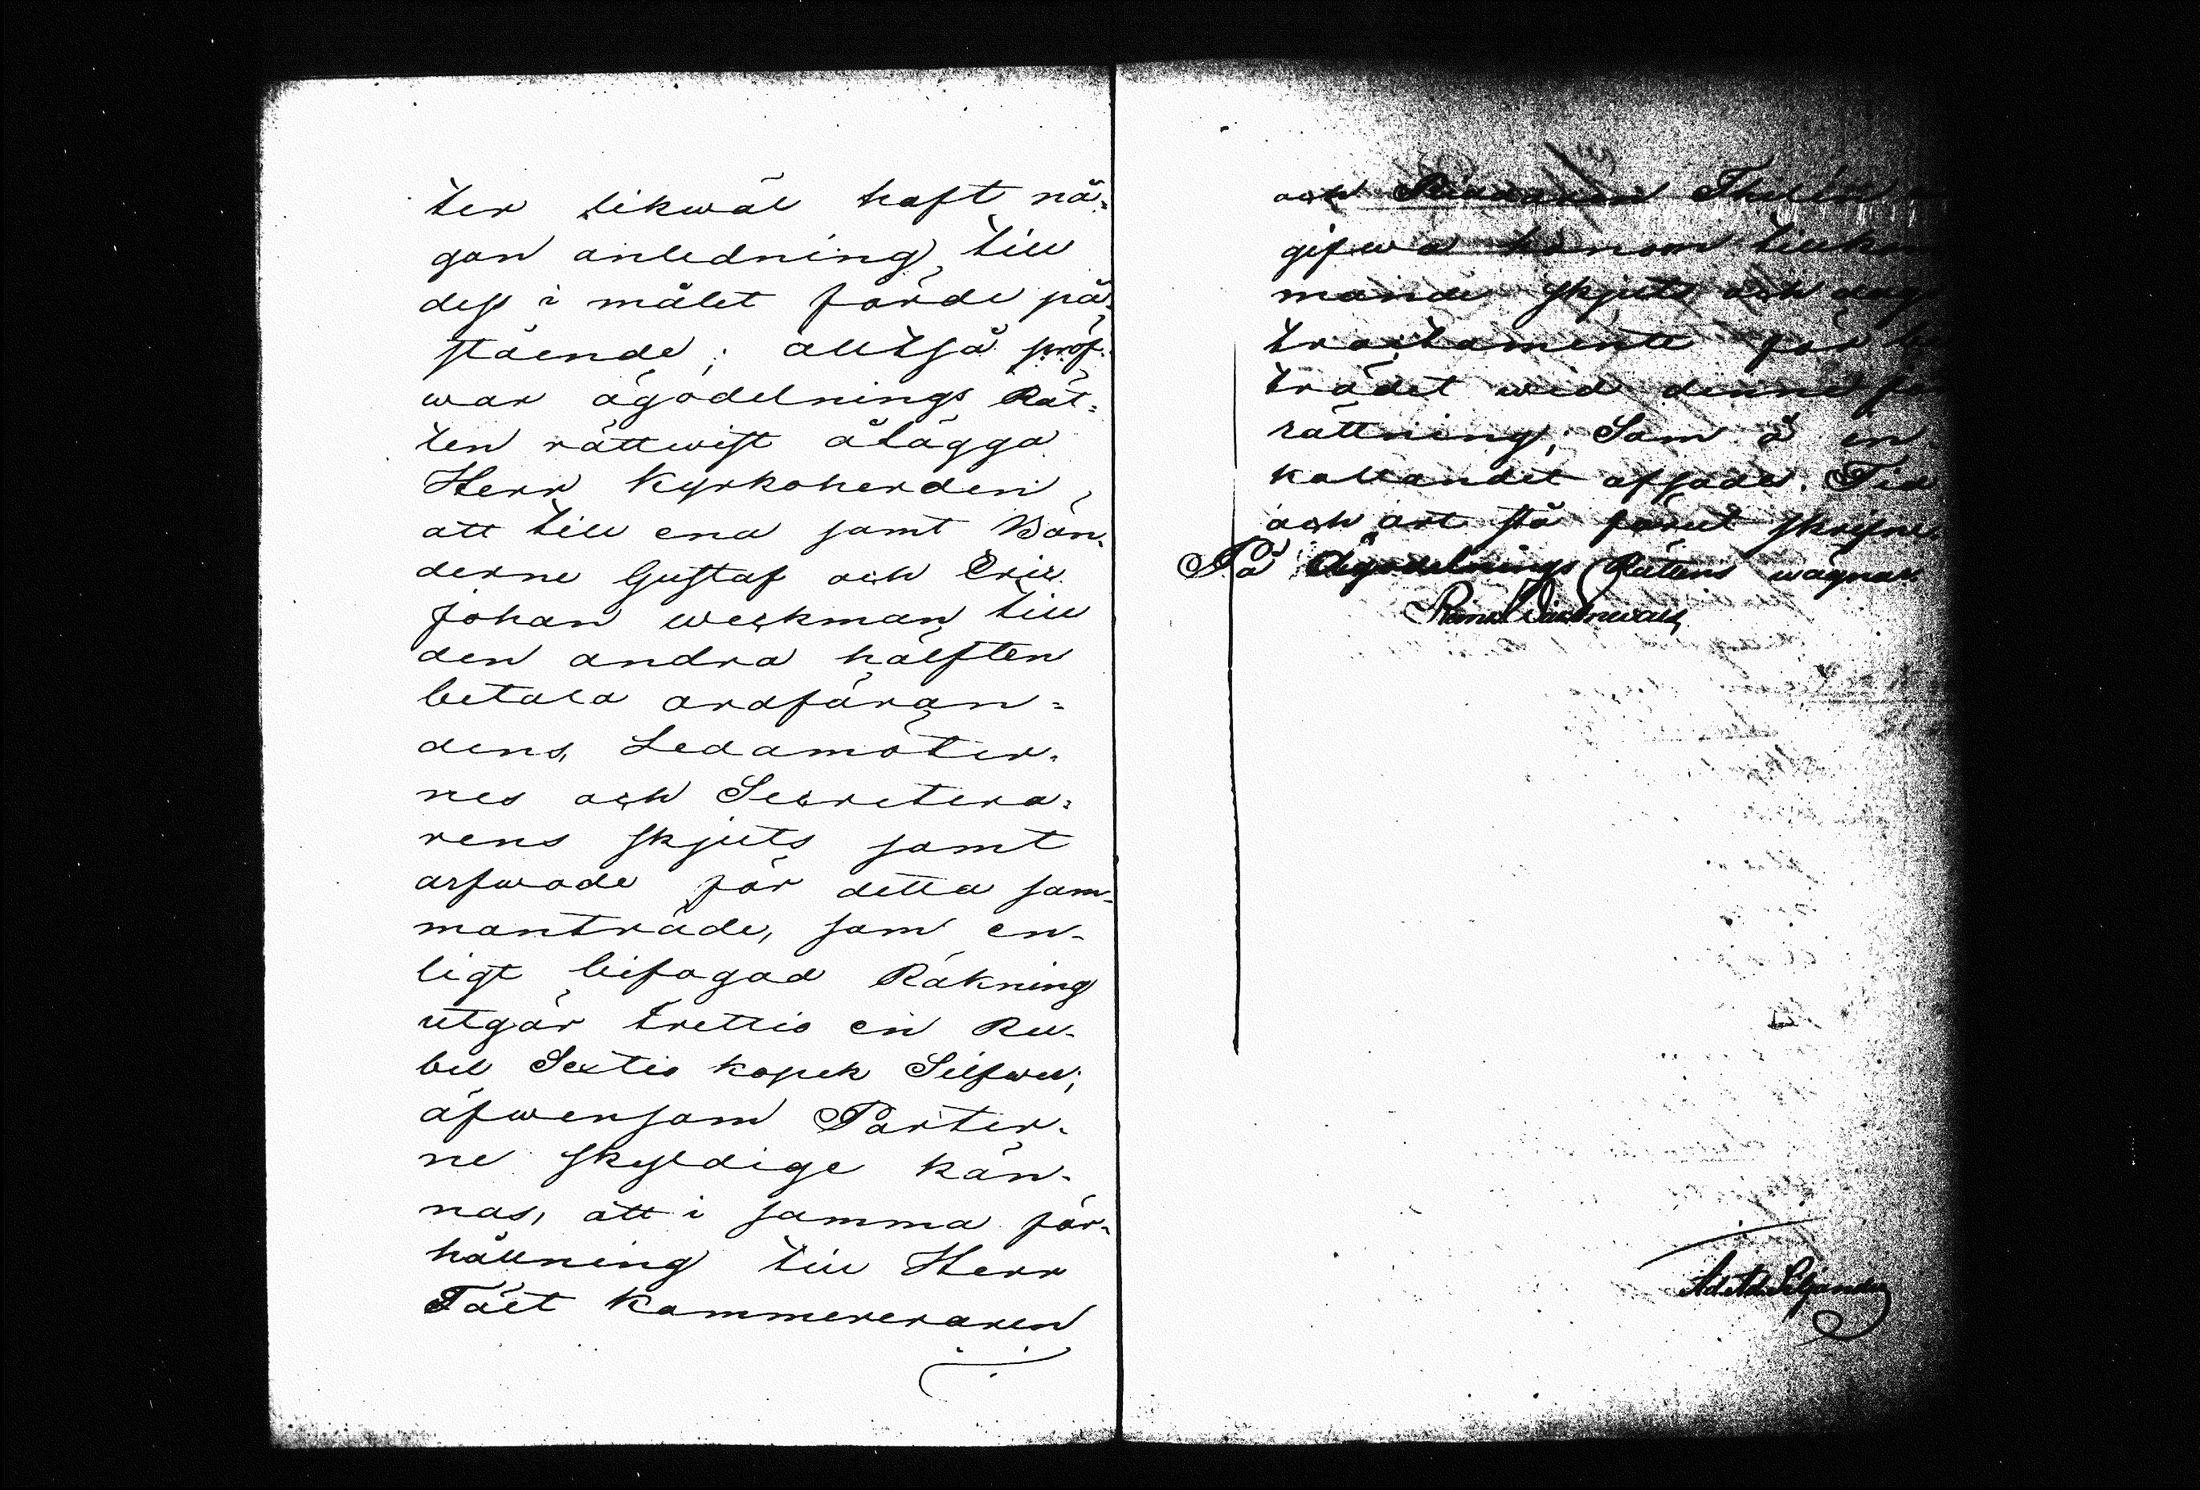 ter likwäl haft nå-
gon anledning till
dess i målet förde på-
stående; alltså pröf-
war ägodelnings Rät-
ten rättwist ålägga
Herr Kyrkoherden,
att till ena samt Bön-
derne Gustaf och Eric
Johan Weckman till
den andra hälften
betala ordföran-
dens, Ledamöter-
nes och Secretera-
rens skjuts samt
arfwode för detta sam-
manträde, som en-
ligt bifogad Räkning
utgör trettio en Ru-
bel Sextio kopek Silfwer;
äfwensom Parter-
ne skyldige kän-
nas, att i samma för-
hållning till Herr
Fält Kammereraren
och Riddaren Thilén
gifwa honom tillkom
mande skjuts och dag
tractamente för bi
trädet wid denne för
rättning; Som å in-
kallandet afsades. Tid
och ort stå förut skrifne.
På Ägodelnings Rättens wägnar
Ad. Ad. Siljander